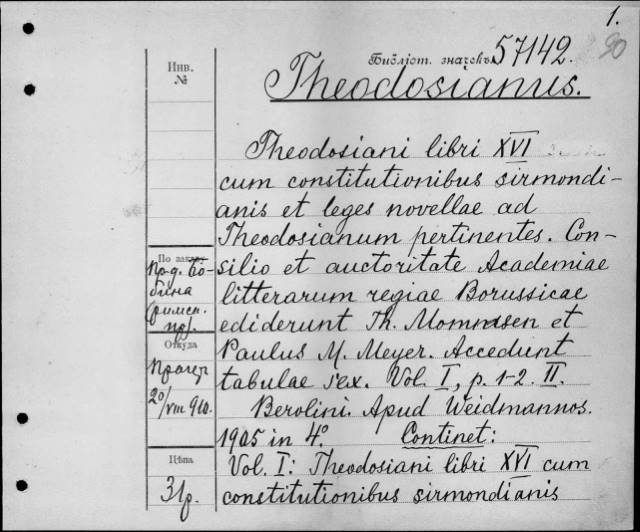 1.
20
Библіот. значекъ 57142.
Theodosianus.
Инв.
№
Theodosiani libri XVI
cum constitutionibus sirmondi-
anis et leges novellae ad
Theodosianum pertinentes. Con-
silio et auctoritate Academiae
litterarum regiae Borussicae
ediderunt Th. Mommsen et
Paulus M. Meyer. Accedunt
tabulae sex. Vol. I, p. 1-2. II.
Berolini. Apud Weidmannos.
1905 in 4°. Continet:
Vol. I: Theodosiani libri XVI cum
constitutionibus sirmondianis
По заказу
Откуда
20/VIII 910.
Цѣна
31р.